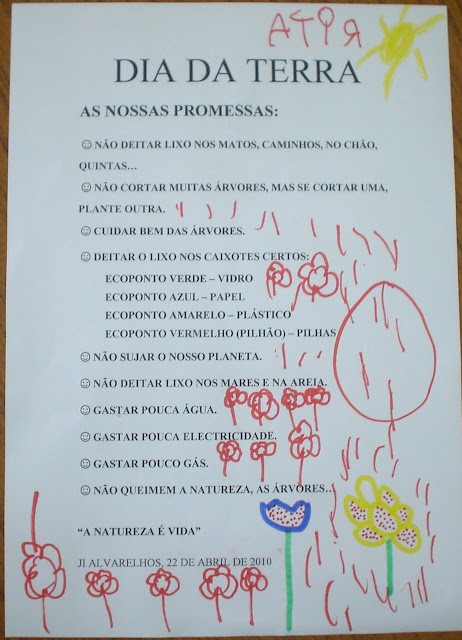 ATIЯ
DIA DA TERRA
AS NOSSAS PROMESSAS:
☺ NÃO DEITAR LIXO NOS MATOS, CAMINHOS, NO CHÃO,
QUINTAS...
☺ NÃO CORTAR MUITAS ÁRVORES, MAS SE CORTAR UMA,
PLANTE OUTRA.
☺ CUIDAR BEM DAS ÁRVORES.
☺ DEITAR O LIXO NOS CAIXOTES CERTOS:
ECOPONTO VERDE – VIDRO
ECOPONTO AZUL – PAPEL
ECOPONTO AMARELO – PLÁSTICO
ECOPONTO VERMELHO (PILHÃO) – PILHAS
☺ NÃO SUJAR O NOSSO PLANETA.
☺ NÃO DEITAR LIXO NOS MARES E NA AREIA.
☺ GASTAR POUCA ÁGUA.
☺ GASTAR POUCA ELECTRICIDADE.
☺ GASTAR POUCO GÁS.
☺ NÃO QUEIMEM A NATUREZA, AS ÁRVORES...
“A NATUREZA É VIDA”
JI ALVARELHOS, 22 DE ABRIL DE 2010